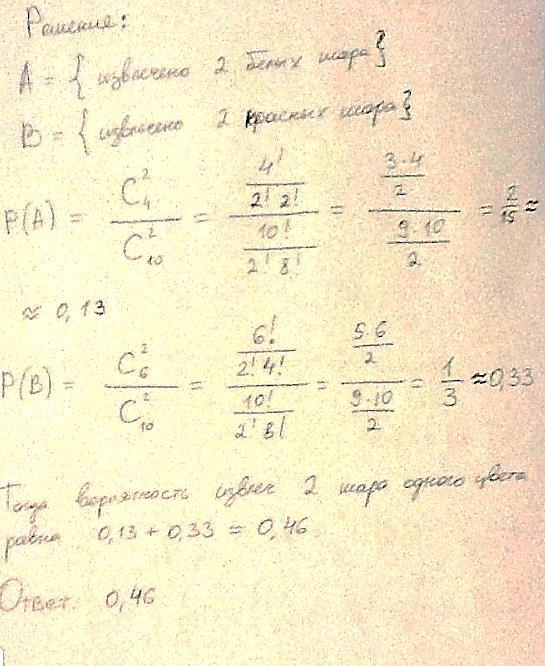 Решение:
A = { извлечено 2 белых шара}
B = { извлечено 2 красных шара}
P(A) = C₄² / C₁₀² = (4! / 2! 2!) / (10! / 2! 8!) = (3·4 / 2) / (9·10 / 2) = 2/15 ≈
≈ 0,13
P(B) = C₆² / C₁₀² = (6! / 2! 4!) / (10! / 2! 8!) = (5·6 / 2) / (9·10 / 2) = 1/3 ≈ 0,33
Тогда вероятность извлеч 2 шара одного цвета
равна 0,13 + 0,33 = 0,46
Ответ: 0,46